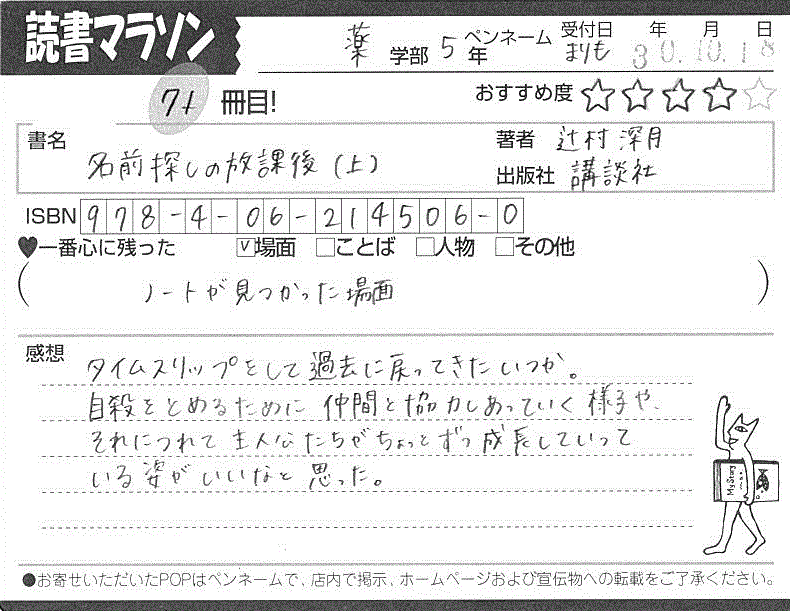 読書マラソン
薬 学部 5 年 ペンネーム まりも 受付日 年 月 日 30.10.18
71 冊目! おすすめ度 ☆☆☆☆☆
書名 名前探しの放課後(上)
著者 辻村深月
出版社 講談社
ISBN 978-4-06-214506-0
♥一番心に残った ☑場面 □ことば □人物 □その他
(ノートが見つかった場面)
感想
タイムスリップをして過去に戻ってきたいつか。
自殺をとめるために仲間と協力しあっていく様子や、
それにつれて主人公たちがちょっとずつ成長していって
いる姿がいいなと思った。
My Story
●お寄せいただいたPOPはペンネームで、店内で掲示、ホームページおよび宣伝物への転載をご了承ください。